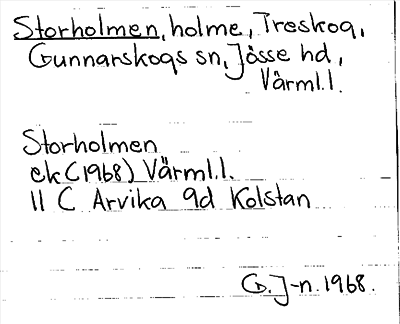 Storholmen, holme, Treskog,
Gunnarskogs sn, Jösse hd,
Värml.l.
Storholmen
ek (1968) Värml.l.
11 C Arvika 9d Kolstan
G. J-n. 1968.